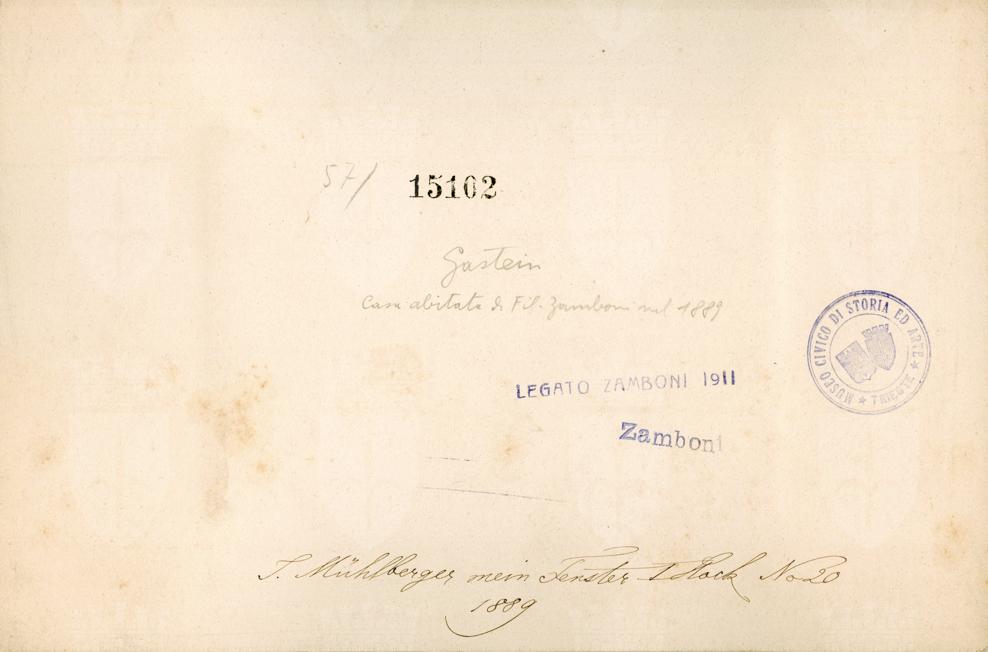 57/ 15102
Gastein
Casa abitata di Fil. Zamboni nel 1889
MUSEO CIVICO DI STORIA ED ARTE ★ TRIESTE ★
LEGATO ZAMBONI 1911
Zamboni
T. Mühlberger mein Fenster 1 Stock No 20
1889